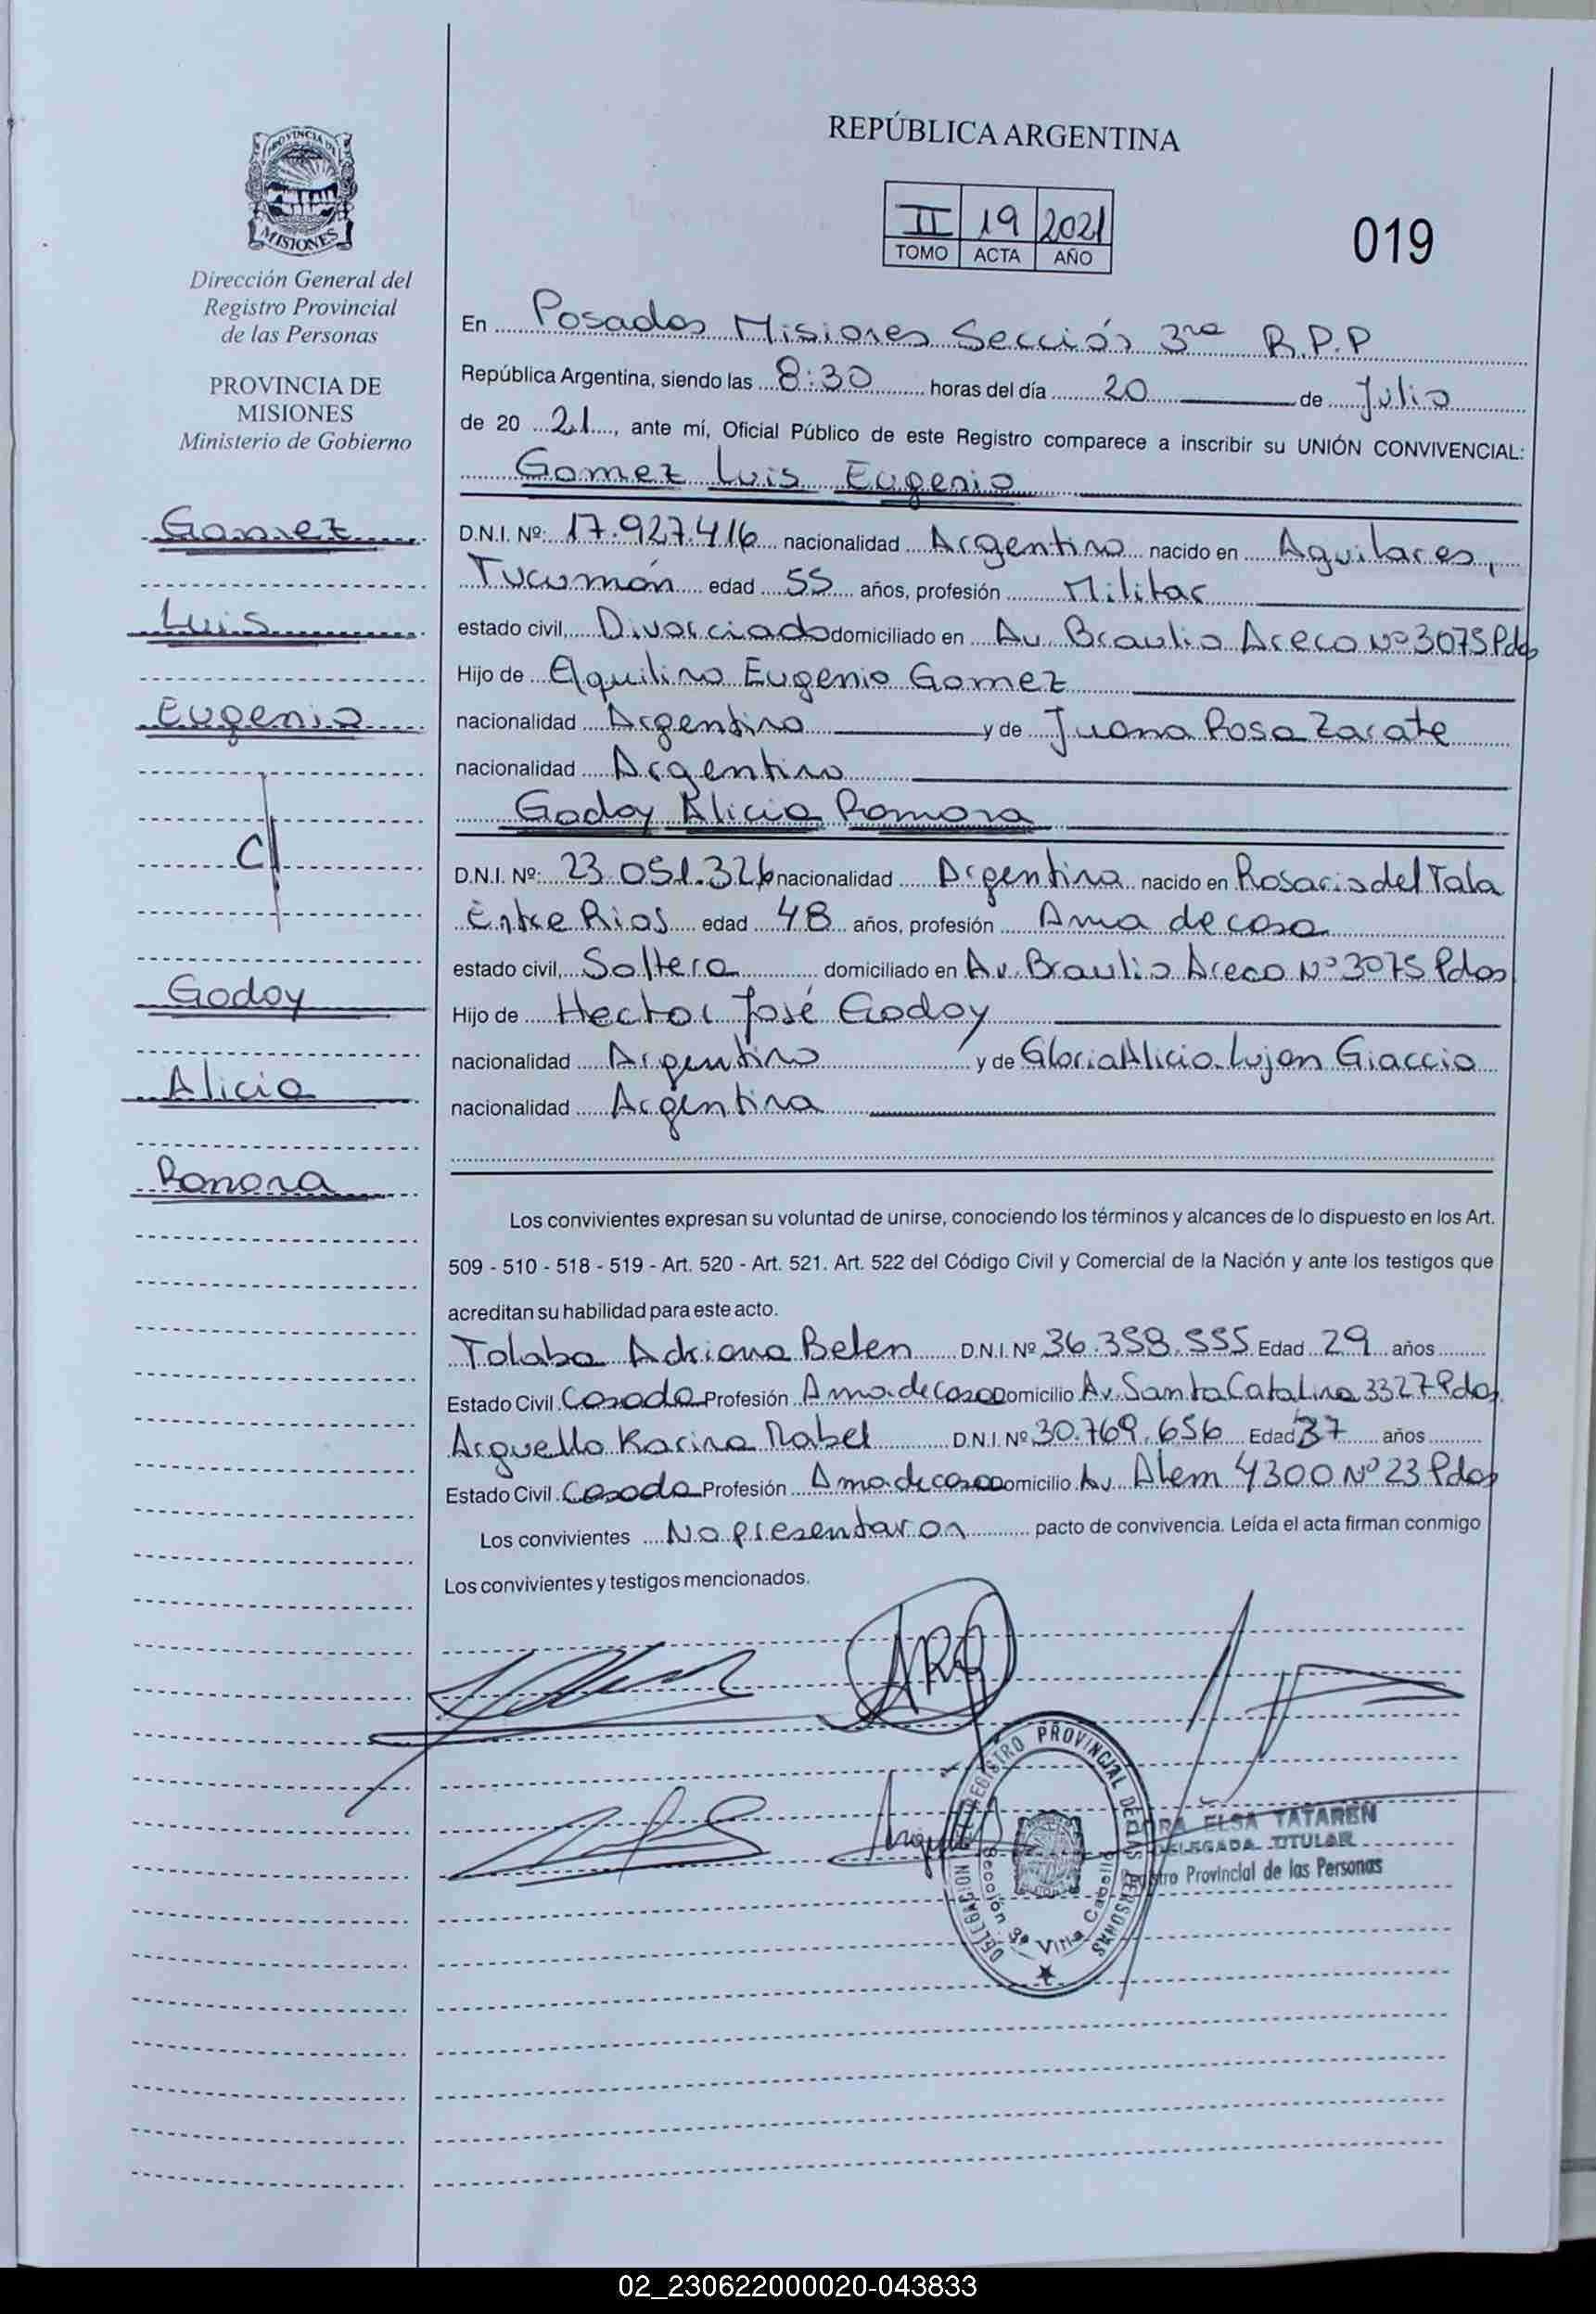 PROVINCIA DE
MISIONES
Dirección General del
Registro Provincial
de las Personas
PROVINCIA DE
MISIONES
Ministerio de Gobierno
Gomez
Luis
Eugenio
C/
Godoy
Alicia
Ramona
REPÚBLICA ARGENTINA
II 19 2021
TOMO ACTA AÑO
019
En Posadas Misiones Sección 3ra R.P.P
República Argentina, siendo las 8:30 horas del día 20 de Julio
de 20 21, ante mí, Oficial Público de este Registro comparece a inscribir su UNIÓN CONVIVENCIAL:
Gomez Luis Eugenio
D.N.I. Nº: 17.927.416 nacionalidad Argentino nacido en Aguilares,
Tucumán edad 55 años, profesión Militar
estado civil, Divorciado domiciliado en Av. Braulio Areco Nº 3075 Pdas
Hijo de Aquilino Eugenio Gomez
nacionalidad Argentino y de Juana Rosa Zarate
nacionalidad Argentino
Godoy Alicia Ramona
D.N.I. Nº: 23.051.326 nacionalidad Argentina nacido en Rosario del Tala
Entre Rios edad 48 años, profesión Ama de casa
estado civil, Soltera domiciliado en Av. Braulio Areco Nº 3075 Pdas
Hijo de Hector José Godoy
nacionalidad Argentino y de Gloria Alicia Lujan Giaccio
nacionalidad Argentina
Los convivientes expresan su voluntad de unirse, conociendo los términos y alcances de lo dispuesto en los Art.
509 - 510 - 518 - 519 - Art. 520 - Art. 521. Art. 522 del Código Civil y Comercial de la Nación y ante los testigos que
acreditan su habilidad para este acto.
Tolaba Adriana Belen D.N.I. Nº 36.358.555 Edad 29 años
Estado Civil Casada Profesión Ama de casa Domicilio Av. Santa Catalina 3327 Pdas.
Arguello Karina Mabel D.N.I. Nº 30.769.656 Edad 37 años
Estado Civil Casada Profesión Ama de casa Domicilio Av. Alem 4300 Nº 23 Pdas
Los convivientes No presentaron pacto de convivencia. Leída el acta firman conmigo
Los convivientes y testigos mencionados.
DELEGACION REGISTRO PROVINCIAL DE LAS PERSONAS
Sección 3ª Villa Cabello
ELSA TATAREN
DELEGADA TITULAR
Provincial de las Personas
02_230622000020-043833